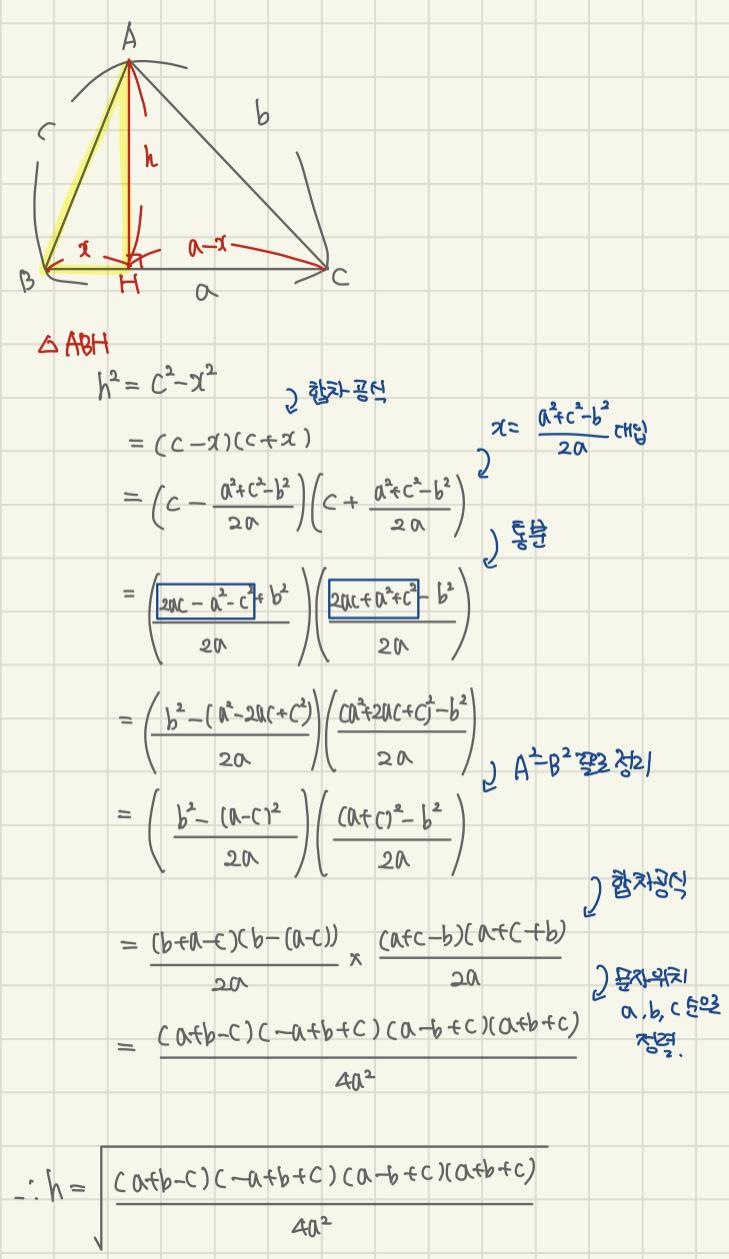 A
c
b
h
x
a-x
B
H
a
C
△ABH
h² = c²-x²
합차공식
= (c-x)(c+x)
x = (a²+c²-b²)/2a 대입
= (c - (a²+c²-b²)/2a)(c + (a²+c²-b²)/2a)
통분
= ((2ac-a²-c²+b²)/2a)((2ac+a²+c²-b²)/2a)
= ((b²-(a²-2ac+c²))/2a)(((a²+2ac+c²)-b²)/2a)
A²-B² 꼴로 정리
= ((b²-(a-c)²)/2a)(((a+c)²-b²)/2a)
합차공식
= (b+a-c)(b-(a-c))/2a × (a+c-b)(a+c+b)/2a
문자위치
a, b, c 순으로
정렬.
= (a+b-c)(-a+b+c)(a-b+c)(a+b+c)/4a²
∴ h = √((a+b-c)(-a+b+c)(a-b+c)(a+b+c)/4a²)